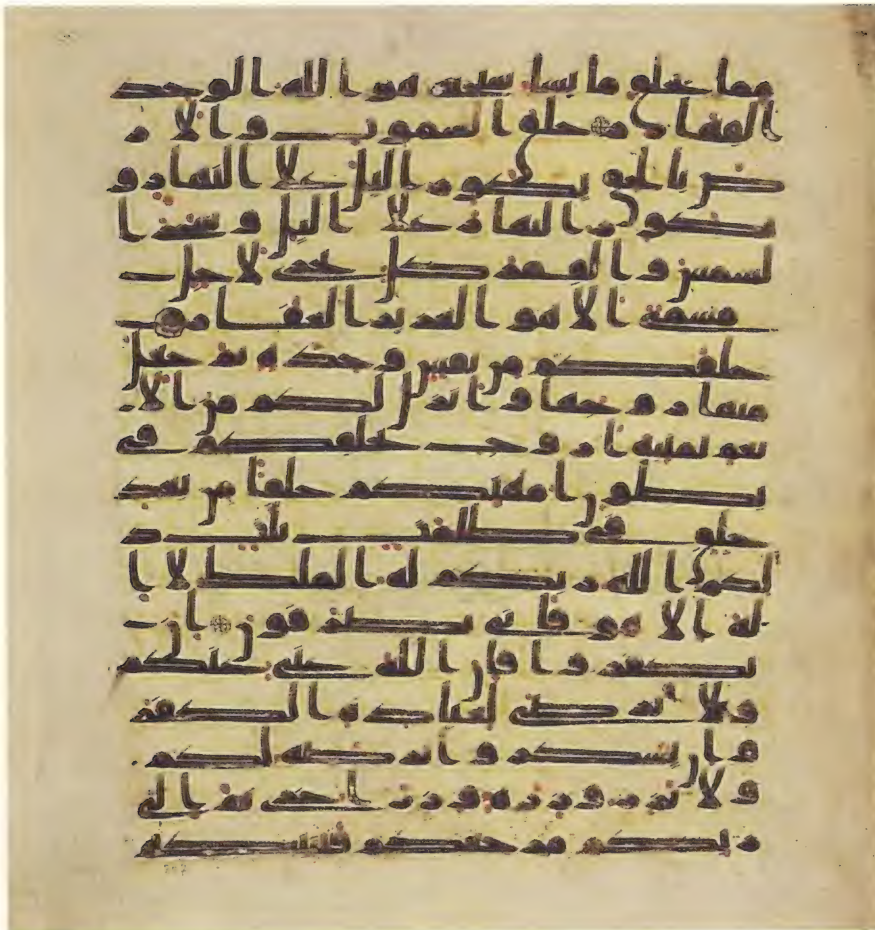 مما يخلق ما يشا سبحنه هو الله الوحد
القهار خلق السموت والار
ض بالحق يكور اليل علا النهار و
يكور النهار علا اليل وسخر ا
لشمس والقمر كل يجرى لاجل
مسمى الا هو العزيز الغفار
خلقكم من نفس وحدة ثم جعل
منها زوجها وانزل لكم من الا
نعم ثمنية ازوج يخلقكم فى
بطون امهتكم خلقا من بعد
خلق فى ظلمت ثلث ذ
لكم الله ربكم له الملك لا ا
له الا هو فانى تصرفون ان
تكفروا فان الله غنى عنكم
ولا يرضى لعباده الكفر
وان تشكروا يرضه لكم
ولا تزر وزرة وزر اخرى ثم الى
ربكم مرجعكم فينبكم